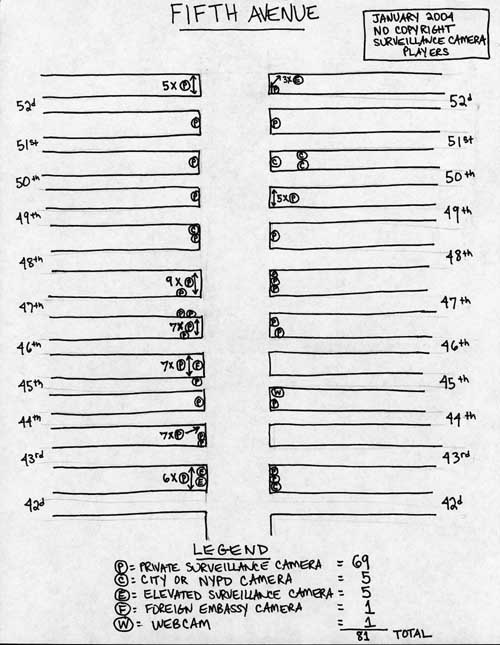 FIFTH AVENUE
JANUARY 2004
NO COPYRIGHT
SURVEILLANCE CAMERA
PLAYERS
5X P
3X E
P
52d
52d
P
P
51st
51st
P
C C C
50th
50th
P
5X P
49th
49th
C P
P
48th
48th
9X P
P
P P P
47th
47th
P P
7X P
P
P P
46th
46th
7X P F
P
45th
45th
P
W P
44th
44th
7X P
P P
43rd
43rd
6X P E E
P P E
42d
42d
LEGEND
P = PRIVATE SURVEILLANCE CAMERA = 69
C = CITY OR NYPD CAMERA = 5
E = ELEVATED SURVEILLANCE CAMERA = 5
F = FOREIGN EMBASSY CAMERA = 1
W = WEBCAM = 1
81 TOTAL